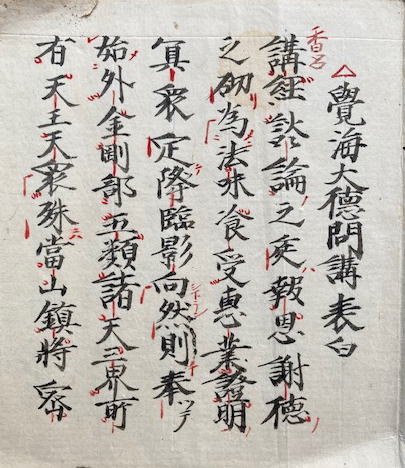 覺海大德問講表白
香呂
講經談論之庭報恩謝德
之砌為法味飡受惠業證明
冥衆定降臨影向然則奉ツテ
始外金剛部五類諸天三界所
有天王天衆殊當山鎮將密